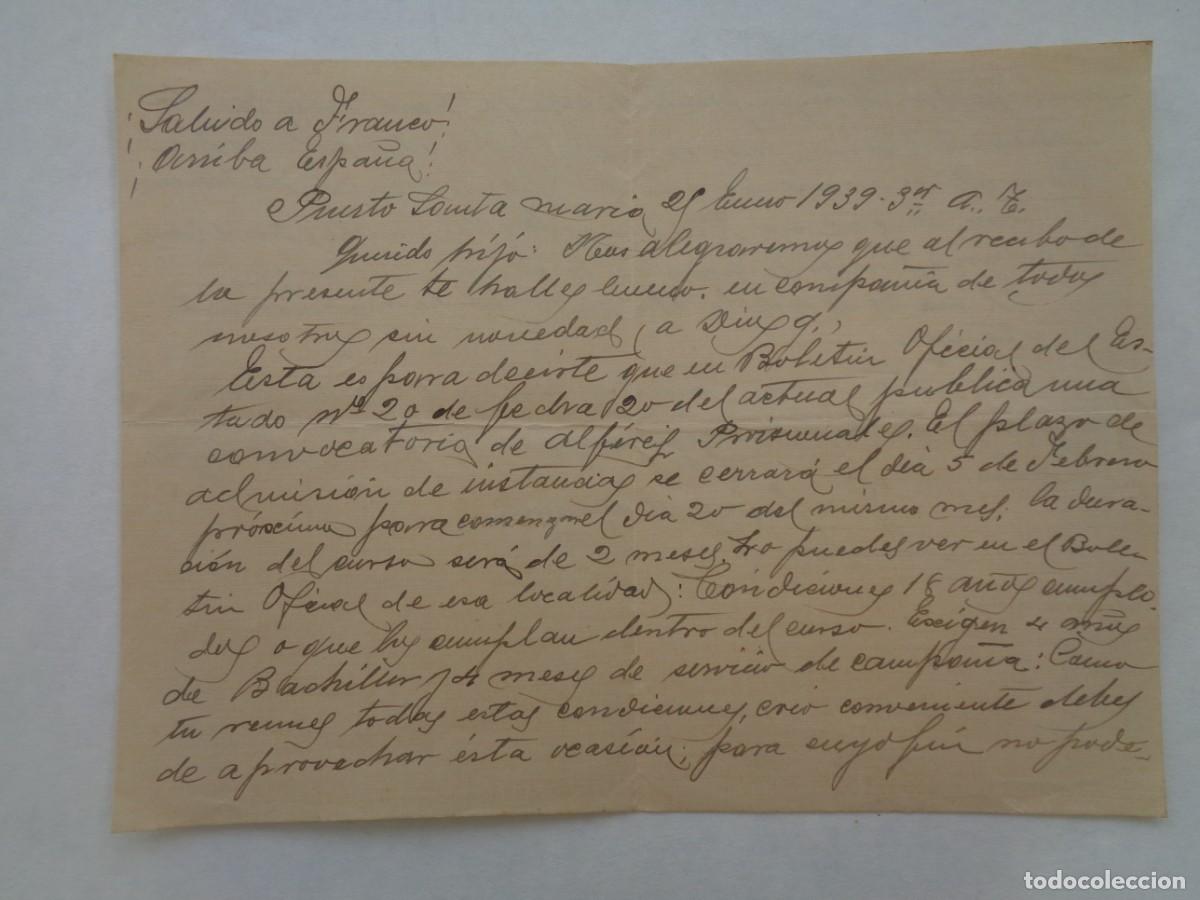 ¡Saludo a Franco!
¡Arriba España!
Puerto Santa Maria 25 Enero 1939-3er A. T.
Querido hijo: Nos alegraremos que al recibo de
la presente te halles bueno. en compañia de todos
nosotros sin novedad, a Dios g.,
Esta es para decirte que en Boletin Oficial del Es-
tado nº 20 de fecha 20 del actual publica una
convocatoria de alféreces Provisionales. El plazo de
admisión de instancias se cerrará el dia 5 de Febrero
próximo para comenzar el dia 20 del mismo mes; la dura-
ción del curso será de 2 meses. Lo puedes ver en el Bole-
tin Oficial de esa localidad: Condiciones 18 años cumpli-
dos o que los cumplan dentro del curso. Exigen 4 años
de Bachiller y 4 meses de servicio de campaña: Como
tu reunes todas estas condiciones, creo conveniente debes
de aprovechar ésta ocasión; para cuyo fin no pode-
todocoleccion